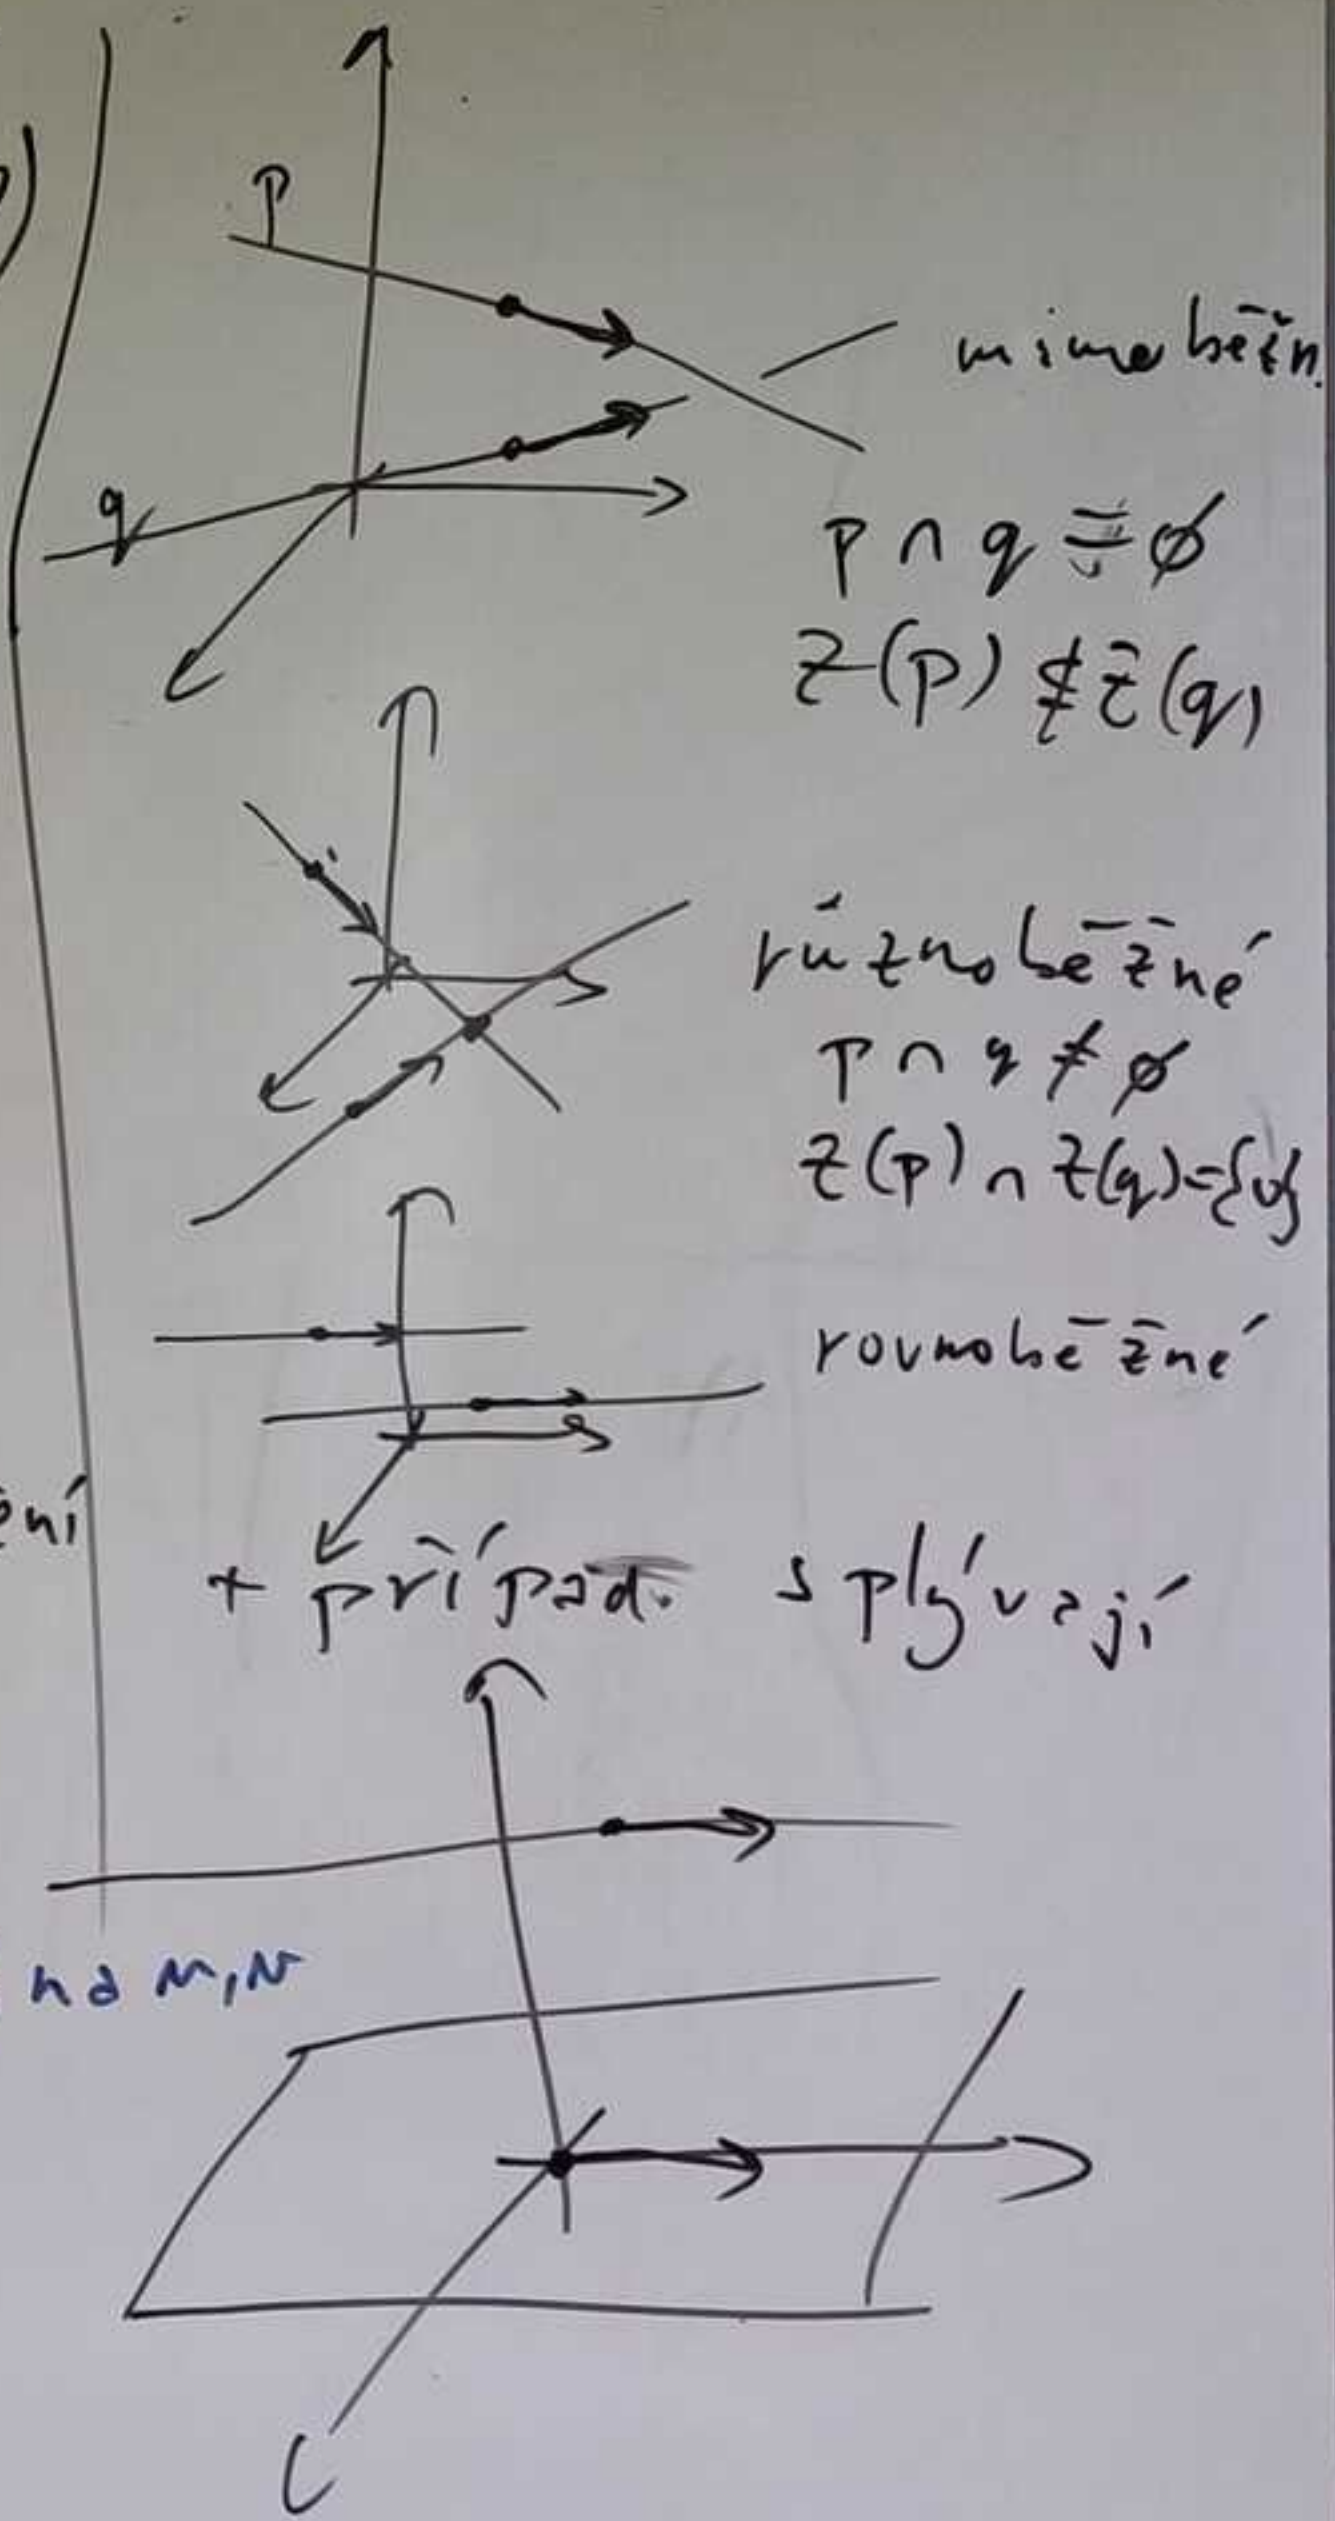 p
mimoběžn.
q
p ∩ q = ∅
Z(p) ⊄ Z(q)
různoběžné
p ∩ q ≠ ∅
Z(p) ∩ Z(q) = {o}
rovnoběžné
ení
+ případ. splývají
na M,N